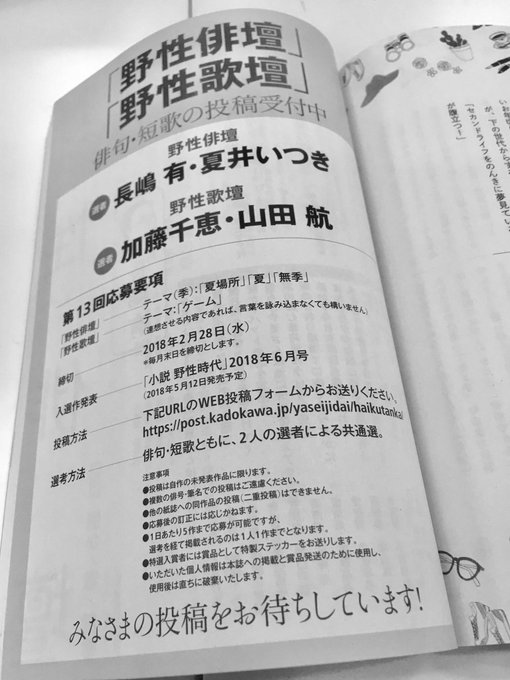 「野性俳壇」
「野性歌壇」
俳句・短歌の投稿受付中
野性俳壇
選者 長嶋 有・夏井いつき
野性歌壇
選者 加藤千恵・山田 航
第13回応募要項
「野性俳壇」 テーマ(季):「夏場所」「夏」「無季」
「野性歌壇」 テーマ:「ゲーム」
(連想させる内容であれば、言葉を詠み込まなくても構いません)
締切 2018年2月28日(水)
*毎月末日を締切とします。
入選作発表 「小説 野性時代」2018年6月号
(2018年5月12日発売予定)
投稿方法 下記URLのWEB投稿フォームからお送りください。
https://post.kadokawa.jp/yaseijidai/haikutanka/
選考方法 俳句・短歌ともに、2人の選者による共通選。
注意事項
●投稿は自作の未発表作品に限ります。
●複数の俳号・筆名での投稿はご遠慮ください。
●他の紙誌への同作品の投稿(二重投稿)はできません。
●応募後の訂正には応じかねます。
●1日あたり5作まで応募が可能ですが、
選考を経て掲載されるのは1人1作までとなります。
●特選入賞者には賞品として特製ステッカーをお送りします。
●いただいた個人情報は本誌への掲載と賞品発送のために使用し、
使用後は直ちに破棄いたします。
みなさまの投稿をお待ちしています!
が、下の世代からす
「セカンドライフをのんきに夢見てい
が腹立つー」